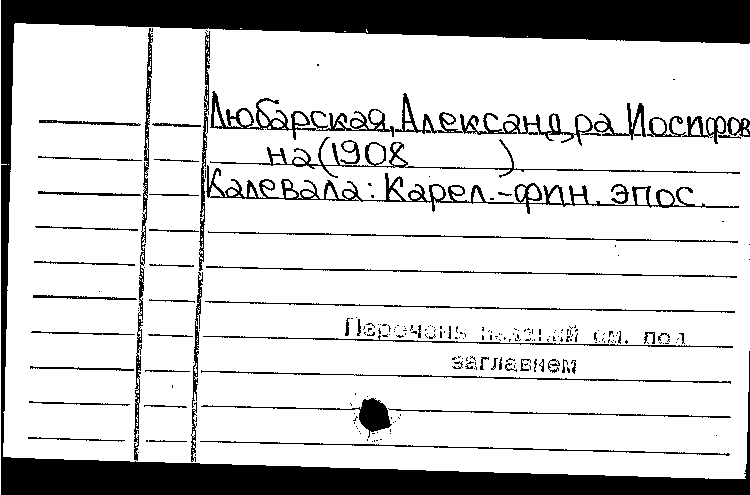 Любарская, Александра Иосифов
на (1908      ).
Калевала: Карел.-фин. эпос.
Перечень изданий см. под
заглавием